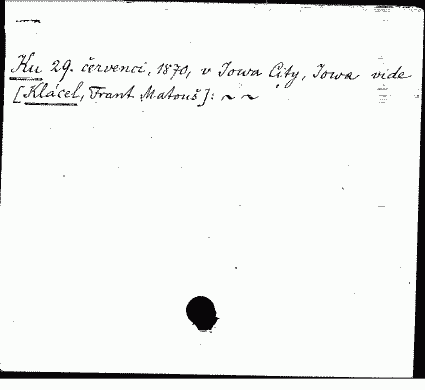 Ku 29. červenci, 1870, v Iowa City, Iowa vide
[Klácel, Frant Matouš]: ~ ~